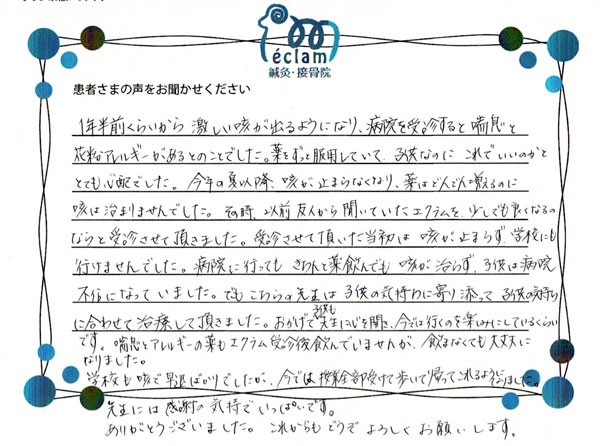 éclam
鍼灸・接骨院
患者さまの声をお聞かせください
1年半前くらいから 激しい咳が出るようになり、病院を受診すると 喘息と
花粉アレルギーがあるとのことでした。薬をずっと服用していて、子供なのに これでいいのかと
とても心配でした。今年の夏以降、咳が止まらなくなり、薬はどんどん増えるのに
咳は治まりませんでした。その時、以前友人から聞いていたエクラムを、少しでも良くなるの
ならと受診させて頂きました。受診させて頂いた当初は 咳が止まらず、学校にも
行けませんでした。病院に行っても きちんと薬飲んでも 咳が治らず、子供は病院
不信になっていました。でもこちらの先生は 子供の気持ちに寄り添って 子供の気持ち
に合わせて治療して頂きました。おかげで子供も先生に心を開き、今では行くのを楽しみにしているくらい
です。喘息とアレルギーの薬もエクラム受診後飲んでいませんが、飲まなくても大丈夫に
なりました。
学校も咳で早退ばかりでしたが、今では授業全部受けて歩いて帰ってこれるようになりました。
先生には感謝の気持でいっぱいです。
ありがとうございました。これからもどうぞよろしくお願いします。